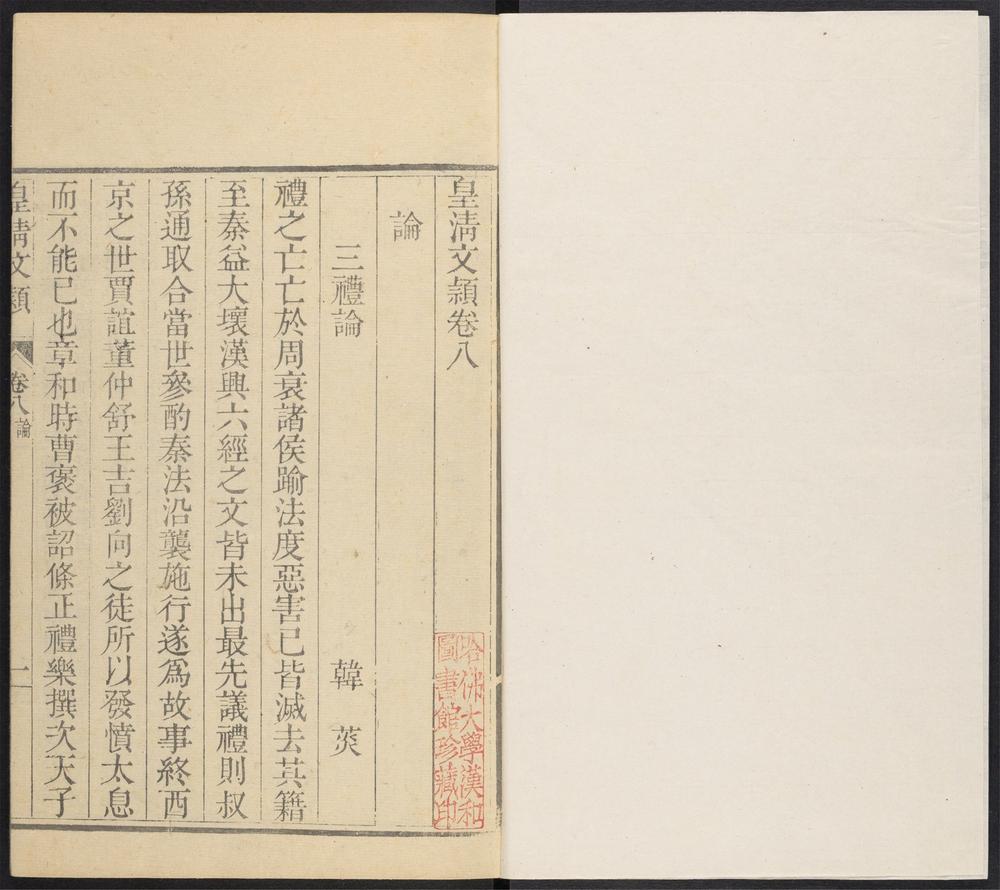 皇淸文穎卷八
論
三禮論
韓菼
禮之亡亡於周衰諸侯踰法度惡害已皆滅去其籍
至秦益大壞漢興六經之文皆未出最先議禮則叔
孫通取合當世參酌秦法沿襲施行遂爲故事終西
京之世賈誼董仲舒王吉劉向之徒所以發憤太息
而不能已也章和時曹褒被詔條正禮樂撰次天子
皇淸文穎 卷八論 一
哈佛大學漢和
圖書館珍藏印